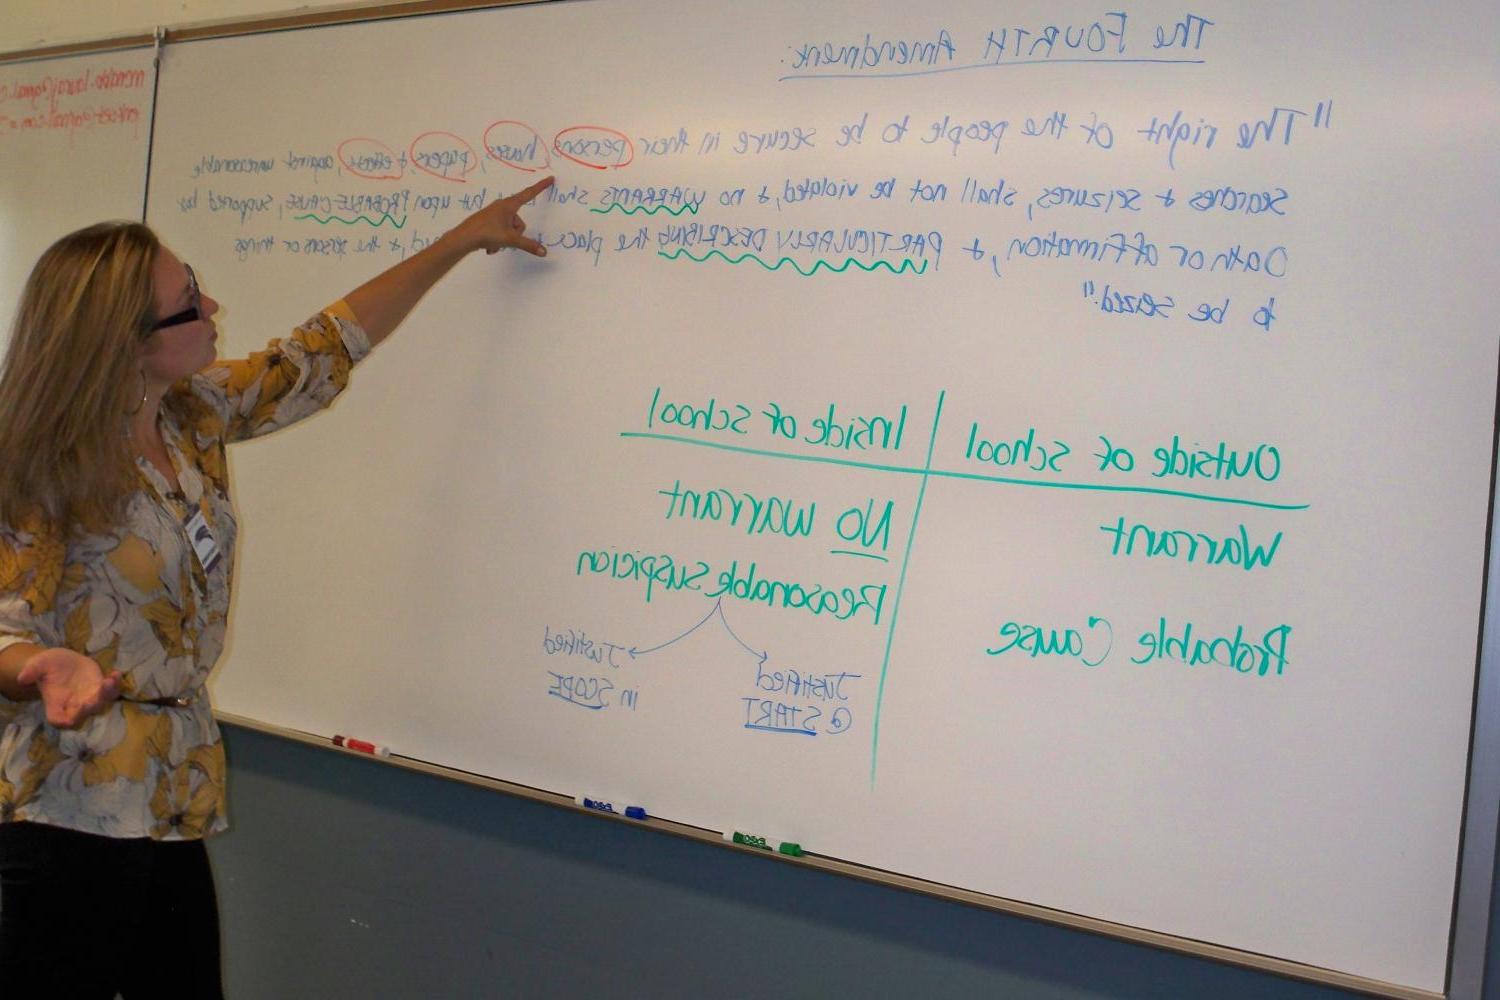 The Fourth Amendment:
"The right of the people to be secure in their persons, houses, papers, & effects, against unreasonable
searches & seizures, shall not be violated, & no WARRANTS shall but upon PROBABLE CAUSE, supported by
Oath or affirmation, & PARTICULARLY DESCRIBING the place & the persons or things
to be seized."
Outside of school Inside of school
Warrant No warrant
Probable Cause Reasonable Suspicion
Justified @ START Justified in SCOPE
EXPO
EXPO